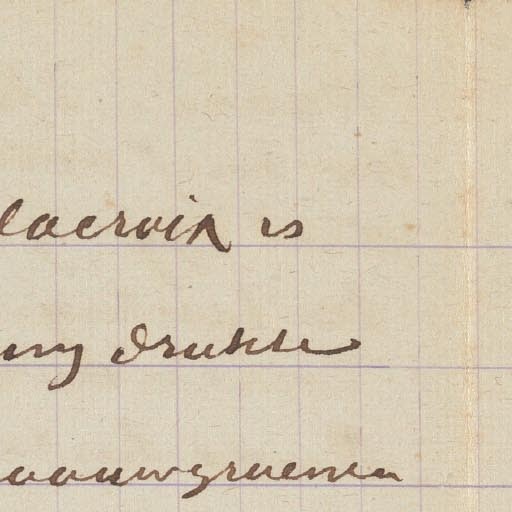 lacroix is
my drukte
aauwgroenen